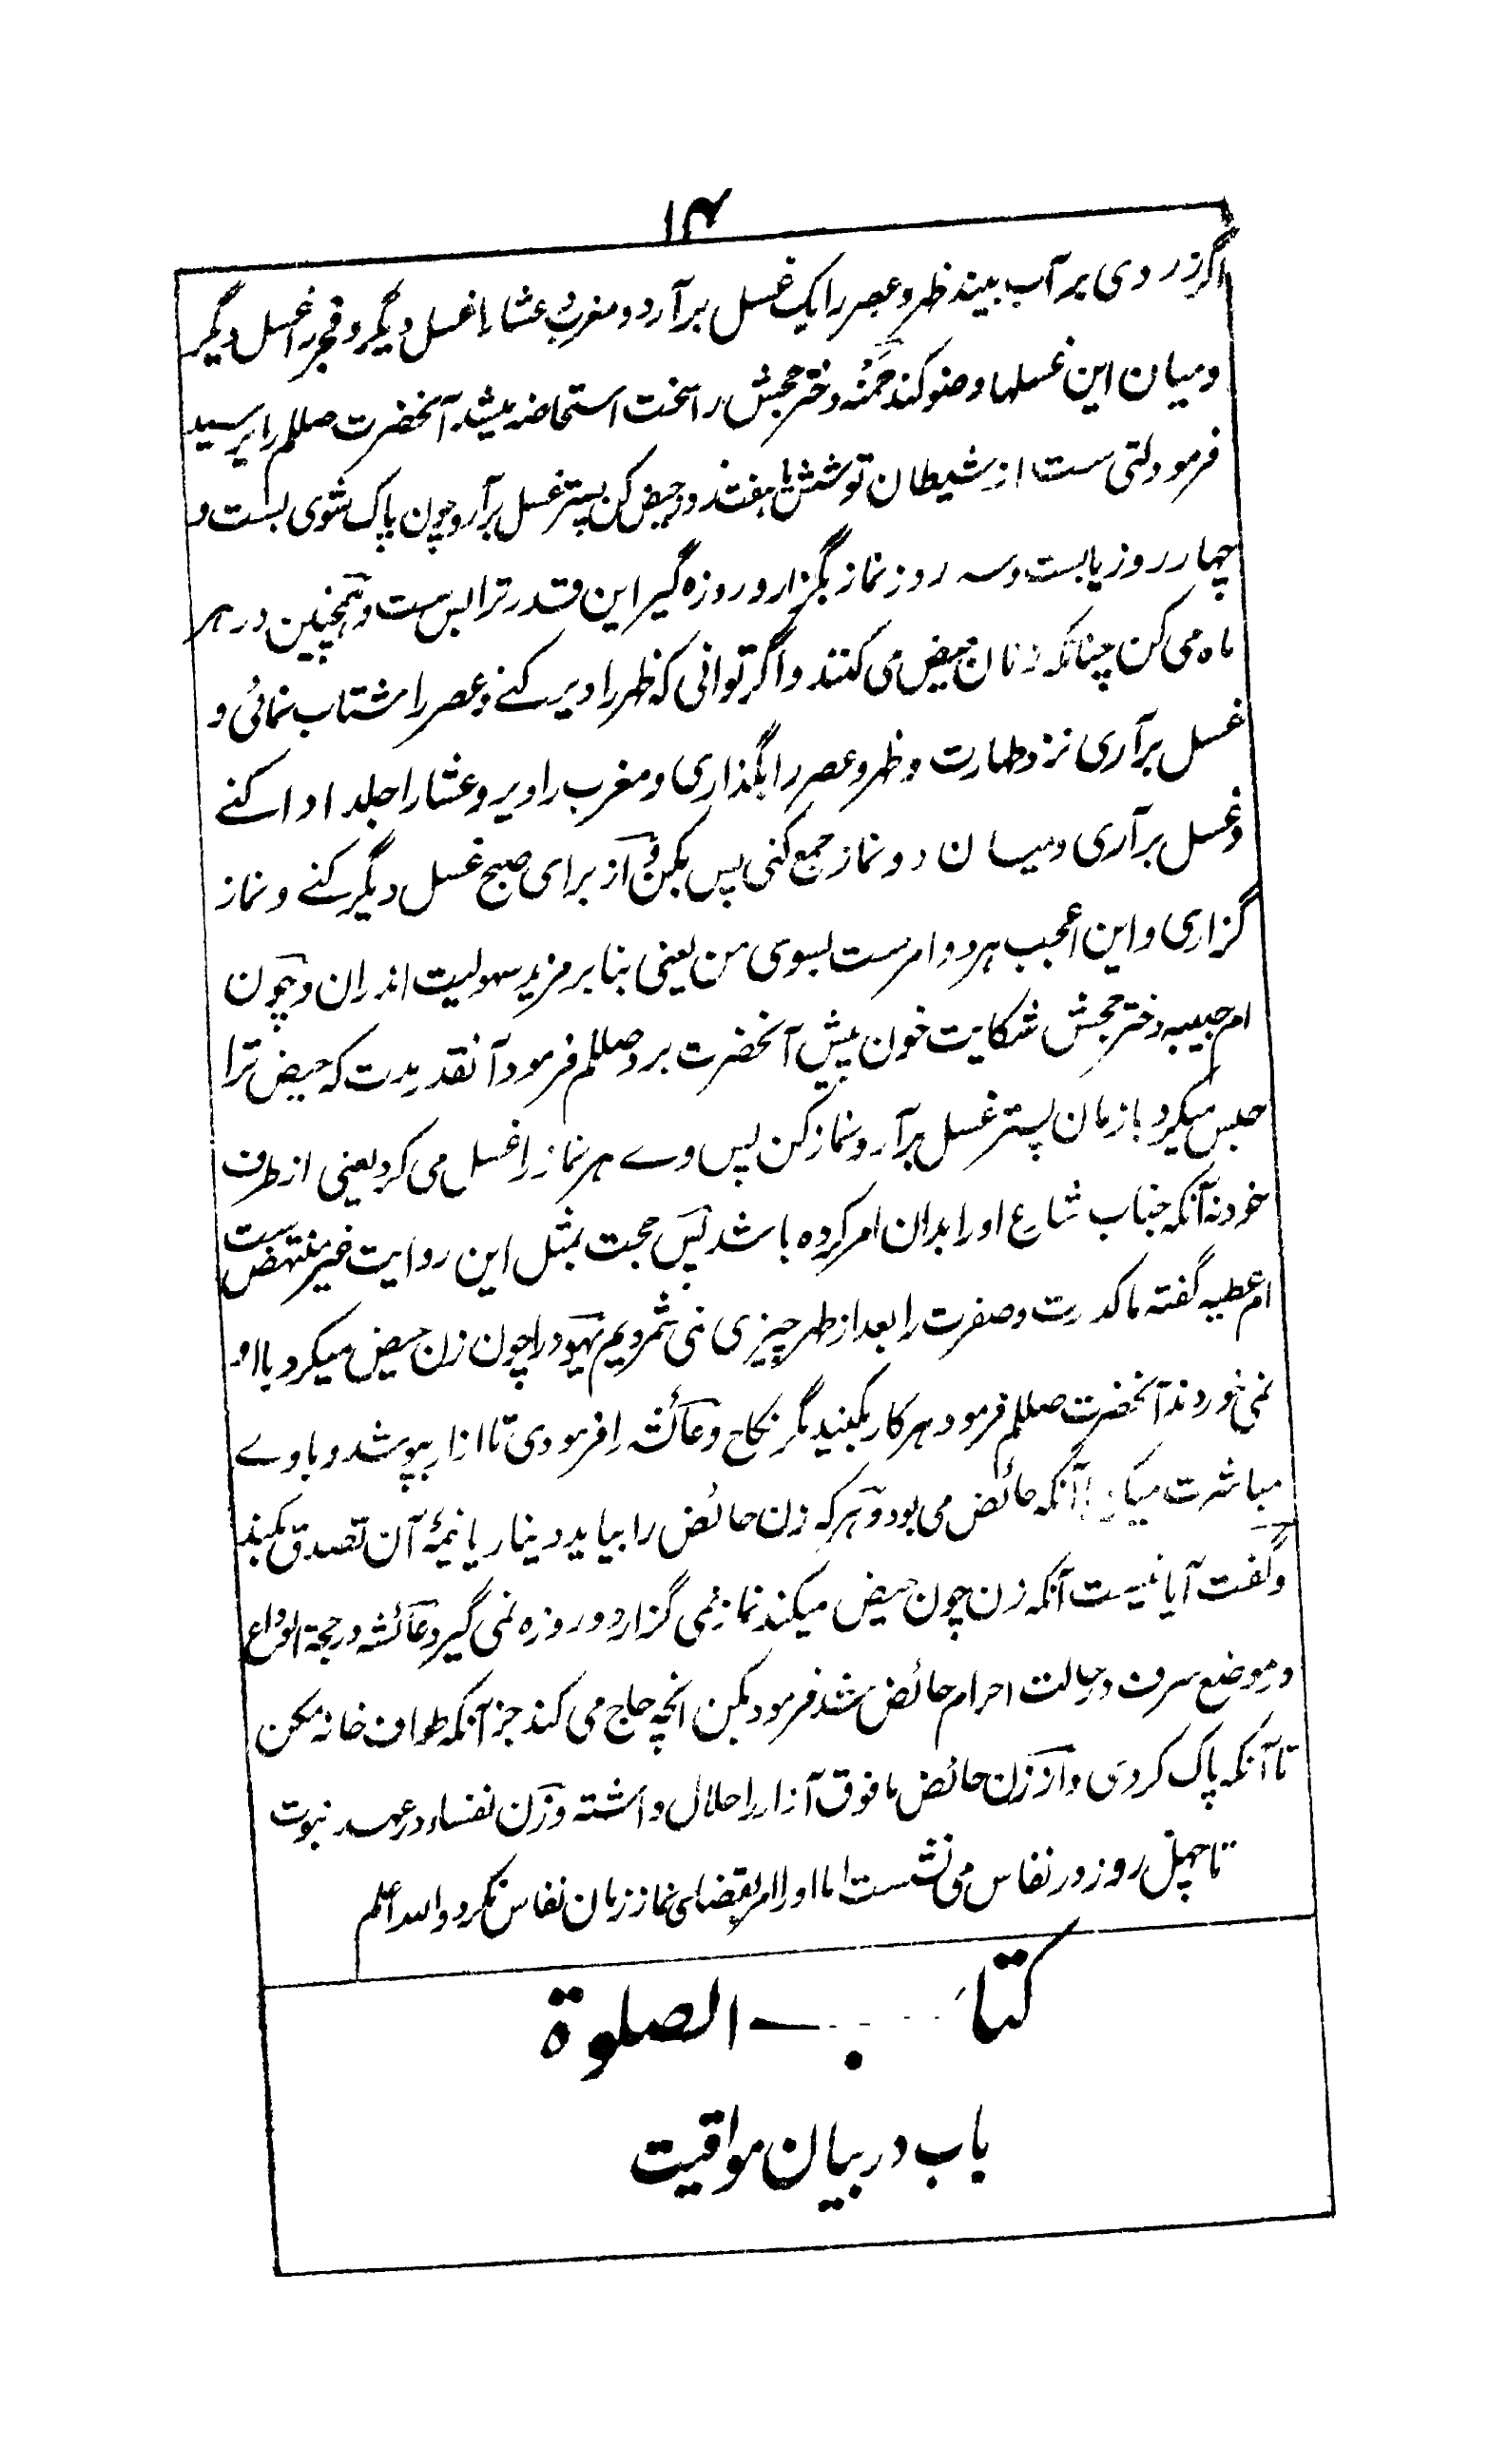 ۱۴
اگر زردی بر آب بیند ظهر و عصر را یک غسل برآرد و مغرب و عشا را غسل دیگر و فجر را غسل دیگر
و میان این غسلها وضو کند حمنه دختر جحش را سخت استحاضه میشد آنحضرت صللم را پرسید
فرمود لتی ست از شیطان تو شش یا هفت روز حیض کن پستر غسل برآر و چون پاک شوی بست و
چهار روز یا بست و سه روز نماز بگزار و روزه گیر این قدر ترا بس ست و همچنین در هر
ماه می کن چنانکه زنان حیض می کنند و اگر توانی که ظهر را دیر کنے و عصر را شتاب نمائی و
غسل برآری نزد طهارت و ظهر و عصر را بگذاری و مغرب را دیر و عشا را جلد ادا کنے
و غسل برآری و میان دو نماز جمع کنی پس بکن و از برای صبح غسل دیگر کنے و نماز
گزاری و این اعجب هر دو امرست بسوی من یعنی بنا بر مزید سهولیت اندران و چون
ام حبیبه دختر جحش شکایت خون پیش آنحضرت برد صللم فرمود آنقدر مدت که حیض ترا
حبس میکرد بازمان پستر غسل برآر و نماز کن پس وے هر نماز را غسل می کرد یعنی از طرف
خود نه آنکه جناب شارع او را بدان امر کرده باشد پس حجت بمثل این روایت غیر منتهض ست
ام عطیه گفته ما کدرت و صفرت را بعد از طهر چیزی نمی شمردیم یهود را چون زن حیض میکرد با او
نمی خوردند آنحضرت صللم فرمود هر کار بکنید مگر نکاح و عائشه را فرمودی تا ازار بپوشد و با وے
مباشرت میکرد با آنکه حائض می بود و هر که زن حائض را بیاید دینار یا نیمهٔ آن تصدق بکند
و گفت آیا نیست آنکه زن چون حیض میکند نماز نمی گزارد و روزه نمی گیرد عائشه در حجة الوداع
در موضع سرف در حالت احرام حائض شد فرمود بکن انچه حاج می کند جز آنکه طواف خانه مکن
تا آنکه پاک کردی و از زن حائض ما فوق آزار را حلال داشته و زن نفساء در عهد نبوت
تا چهل روز در نفاس می نشست اما او را امر بقضای نماز زمان نفاس نکرد والله اعلم
کتاب الصلوة
باب در بیان مواقیت